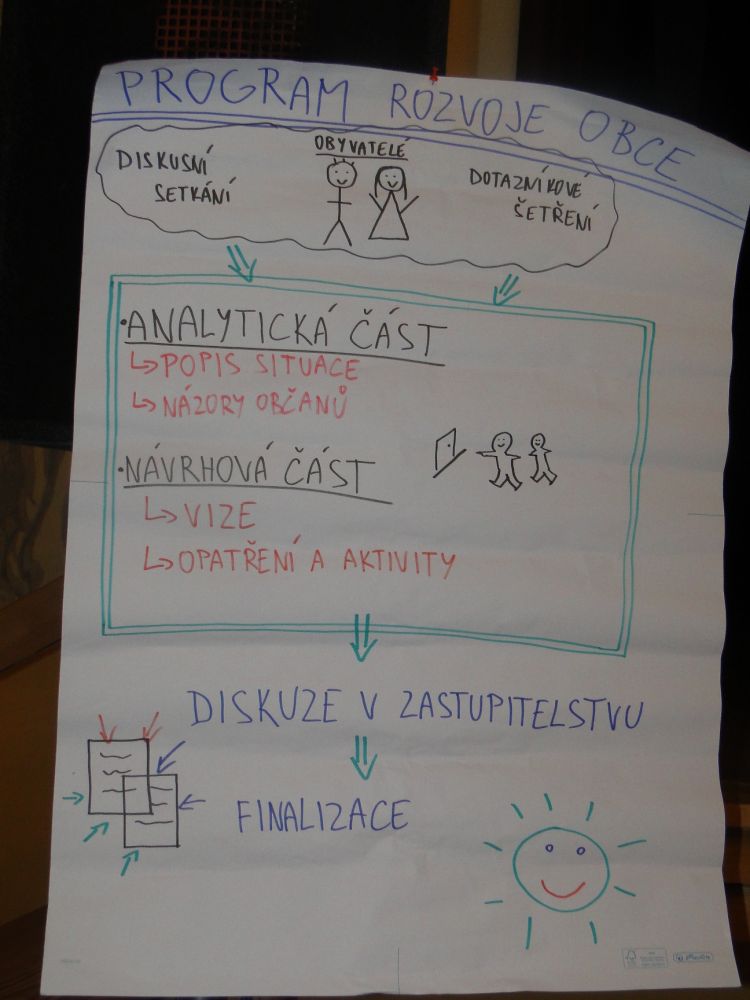 PROGRAM ROZVOJE OBCE
OBYVATELÉ
DISKUSNÍ
SETKÁNÍ
DOTAZNÍKOVÉ
ŠETŘENÍ
•ANALYTICKÁ ČÁST
↳POPIS SITUACE
↳NÁZORY OBČANŮ
•NÁVRHOVÁ ČÁST
↳VIZE
↳OPATŘENÍ A AKTIVITY
DISKUZE V ZASTUPITELSTVU
FINALIZACE